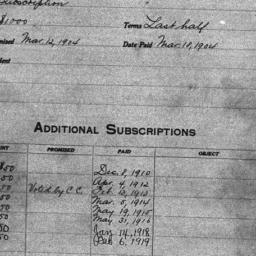 Subscription
$1000
Terms Last half
mised Mar. 12, 1904
Date Paid Mar. 10, 1904
dent
ADDITIONAL SUBSCRIPTIONS
NT PROMISED PAID OBJECT
50 Dec. 8, 1910
50 Apr. 4, 1912
50 Voted by C.C. Feb. 13, 1913
50 Mar. 5, 1914
50 May 19, 1915
50 May 31, 1916
50 Jan. 14, 1918
50 Feb. 6, 1919